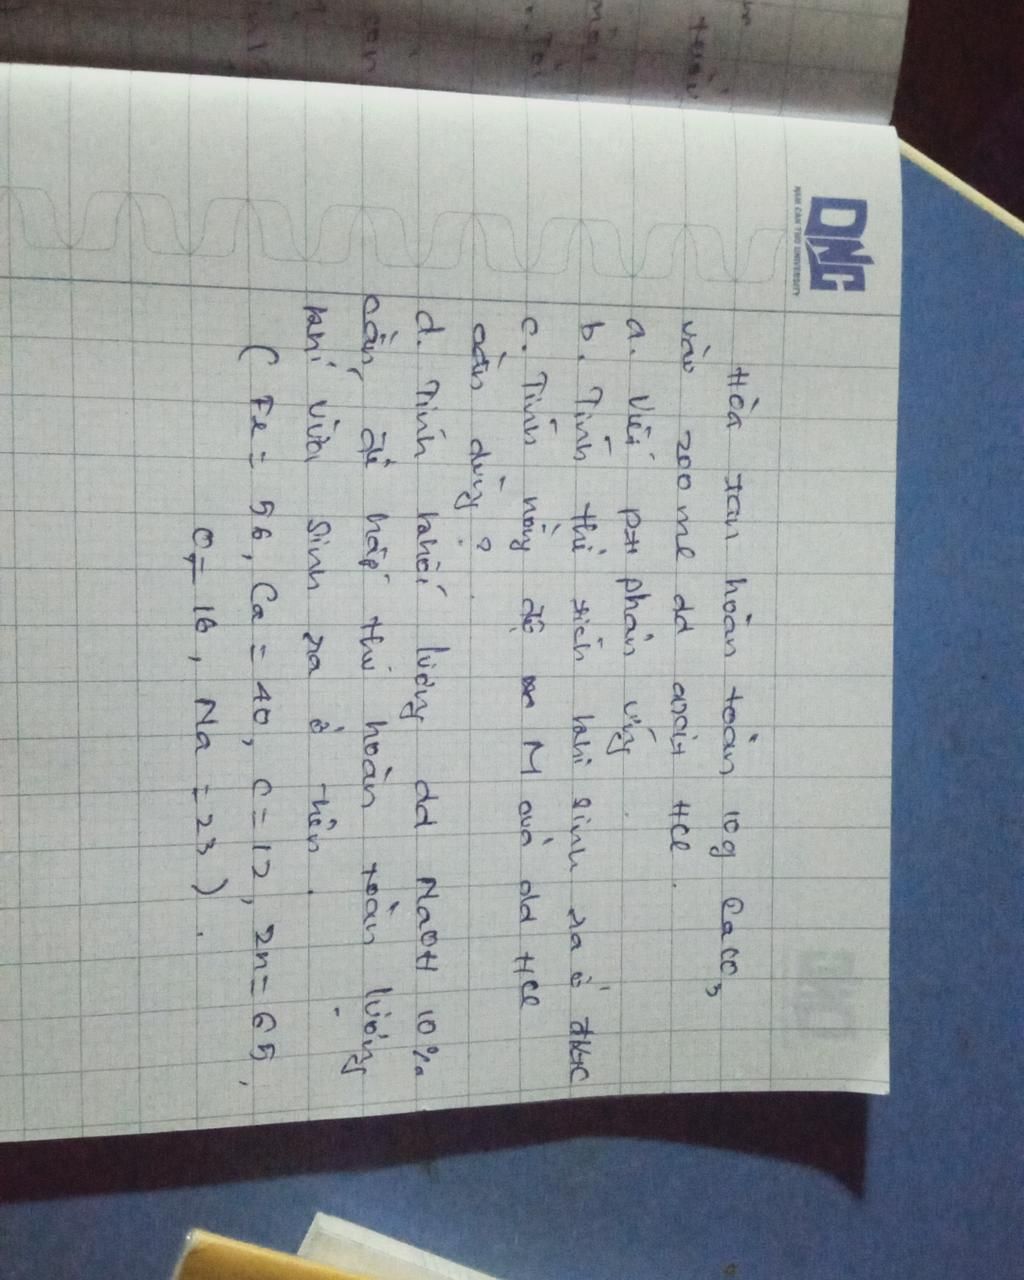 DNC
NAM CAN THO UNIVERSITY
Hòa tan hoàn toàn 10g CaCO3
vào 200 ml dd axit HCl.
a. Viết pt phản ứng.
b. Tính thể tích khí sinh ra ở đktc
c. Tính nồng độ M của dd HCl
cần dùng?
d. Tính khối lượng dd NaOH 10%
cần để hấp thụ hoàn toàn lượng
khí vừa sinh ra ở trên.
( Fe = 56, Ca = 40, C = 12, Zn = 65,
O = 16, Na = 23 ).